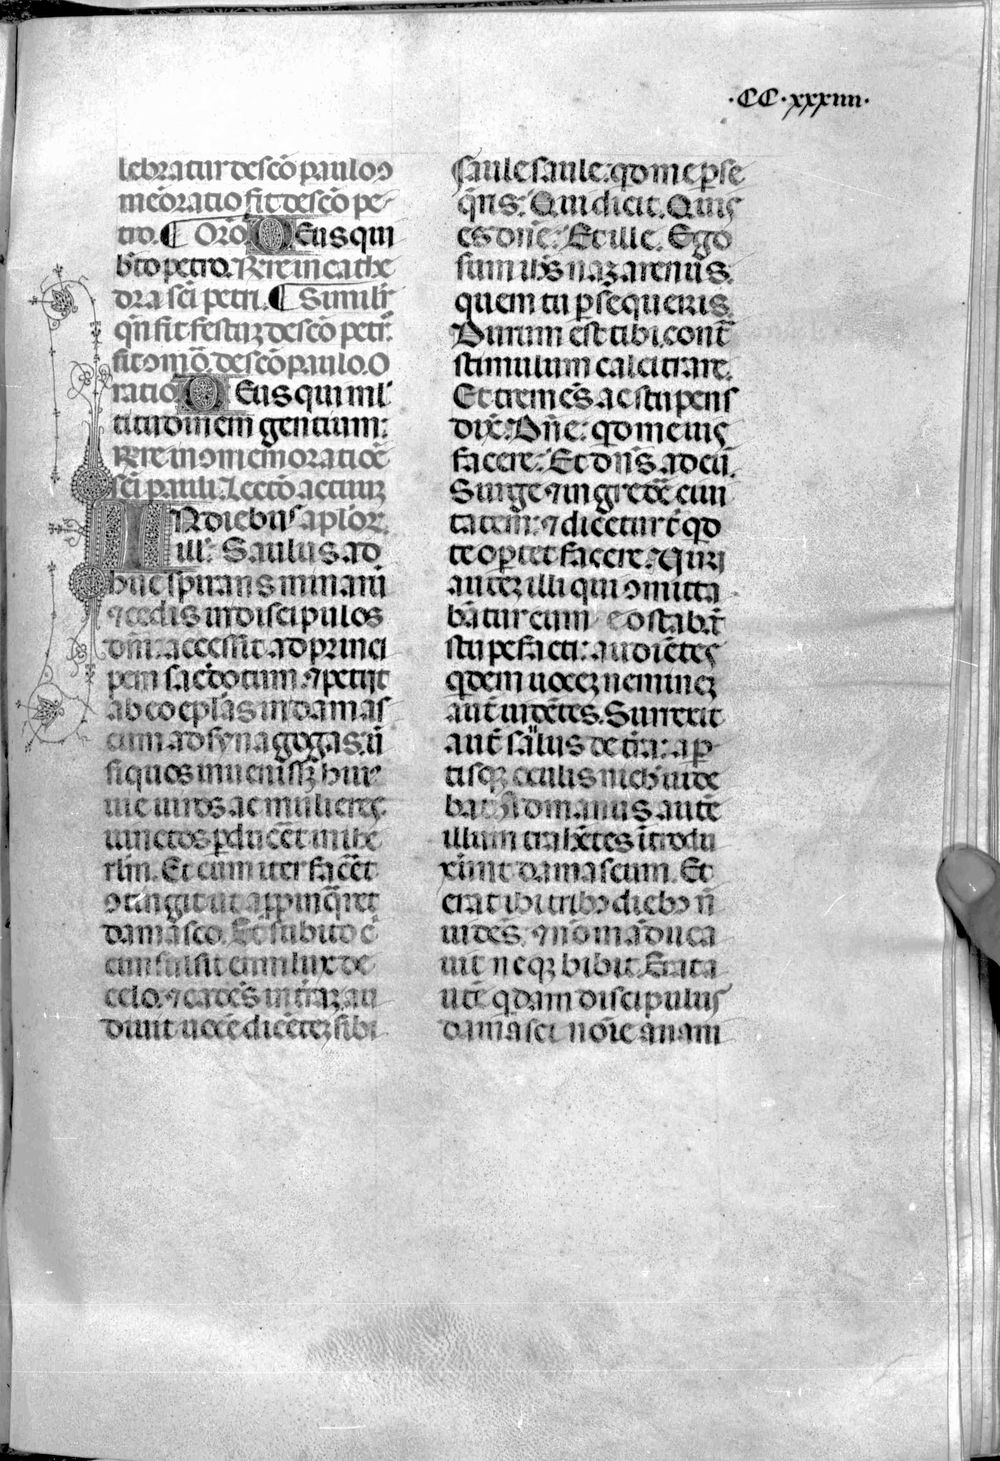 ·CC·xxxiiii·
lebratur de scō paulo ↄ
meōratio fit de scō pe-
tro. ¶ Orō. DEus qui
bt̄o petro. Rᵉre in cathe
dra sci petri. ¶ Similr̄
qn̄ fit festuꝫ de scō petr̄.
fit ↄmō. de scō paulo. O
ratio DEus qui ml̄
titudinem gentium:
Rᵉre in ↄmemoratiōe
sci pauli. Lectō actuuꝫ
INdiebus aplorꝝ
ill᷎: Saulus ad
huc spirans minarū
⁊ cedis in discipulos
dn̄i: accessit ad princi
pem sac̄dotum. ⁊ petijt
ab eo ep̄las in damas
cum ad synagogas. ū
si quos inuenissꝫ huiꝰ
uie uiros ac mulieres
uinctos ꝑduceēt in ihe
rl̄m. Et cum iter fac̄et
ↄtingit ut appinq̄ret
damasco. Et subito c̄
cunfulsit eum lux de
celo. ⁊ cadēs in tr̄aꝫ au
diuit uocē dicētēꝫ sibi
saule saule: qd me ꝑse
q̄ris. Qui dicit. Quis
es dn̄e. Et ille. Ego
sum ihs nazarenus.
quem tu ꝑsequeris.
Durum est tibi cont̄
stimulum calcitrare.
Et tremēs ac stupens
dix̄. Dn̄e: qd me uis
facere. Et dn̄s ad eū.
Surge ⁊ ingredē ciui
tatem: ⁊ dicetur t̄ qd
te oꝑtet facere. Uiri
auteꝫ illi qui ↄmitta
bātur cum eo stabāt
stupefacti: audiētes
qdem uoceꝫ nemineꝫ
aut̄ uidētes. Surrexit
aut̄ saulus de tr̄a: aꝑ-
tisqꝫ oculis nich̄ uide
bat. Ad manus autē
illum trahētes ītrodu
xerunt damascum. Et
erat ibi tribꝰ diebꝰ ñ
uidēs. ⁊ nō māduca
uit neqꝫ bibit. Erat a
utē qdam discipulus
damasci noīe anani